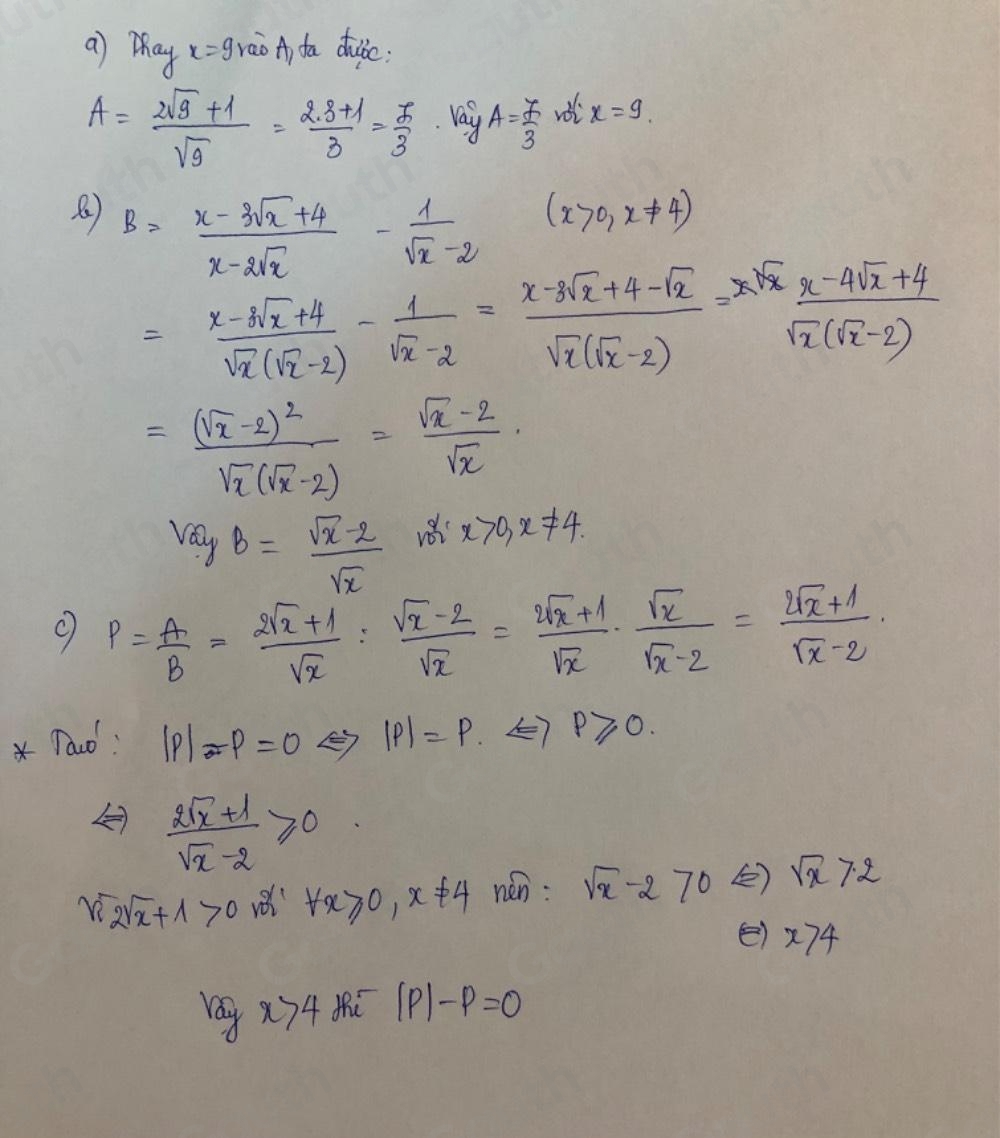 a) Thay x=9 vào A, ta được:
A = (2√9 + 1)/√9 = (2.3+1)/3 = 7/3 . Vậy A = 7/3 với x = 9.
b) B = (x - 3√x + 4)/(x - 2√x) - 1/(√x - 2) (x>0, x≠4)
= (x - 3√x + 4)/(√x(√x - 2)) - 1/(√x - 2) = (x - 3√x + 4 - √x)/(√x(√x - 2)) = (x - 4√x + 4)/(√x(√x - 2))
= (√x - 2)²/(√x(√x - 2)) = (√x - 2)/√x .
Vậy B = (√x - 2)/√x với x>0, x≠4.
c) P = A/B = (2√x + 1)/√x : (√x - 2)/√x = (2√x + 1)/√x . √x/(√x - 2) = (2√x + 1)/(√x - 2) .
* Ta có: |P| - P = 0 ⇔ |P| = P. ⇔ P ⩾ 0.
⇔ (2√x + 1)/(√x - 2) ⩾ 0 .
Vì 2√x + 1 > 0 với ∀x ⩾ 0, x ≠ 4 nên: √x - 2 > 0 ⇔ √x > 2
⇔ x > 4
Vậy x > 4 thì |P| - P = 0